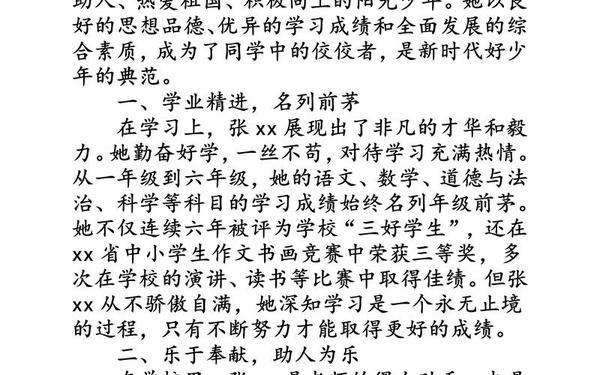 助人、热爱祖国、积极向上的阳光少年。她以良
好的思想品德、优异的学习成绩和全面发展的综
合素质，成为了同学中的佼佼者，是新时代好少
年的典范。
一、学业精进，名列前茅
在学习上，张 xx 展现出了非凡的才华和毅
力。她勤奋好学，一丝不苟，对待学习充满热情。
从一年级到六年级，她的语文、数学、道德与法
治、科学等科目的学习成绩始终名列年级前茅。
她不仅连续六年被评为学校“三好学生”，还在
xx 省中小学生作文书画竞赛中荣获三等奖，多
次在学校的演讲、读书等比赛中取得佳绩。但张
xx 从不骄傲自满，她深知学习是一个永无止境
的过程，只有不断努力才能取得更好的成绩。
二、乐于奉献，助人为乐